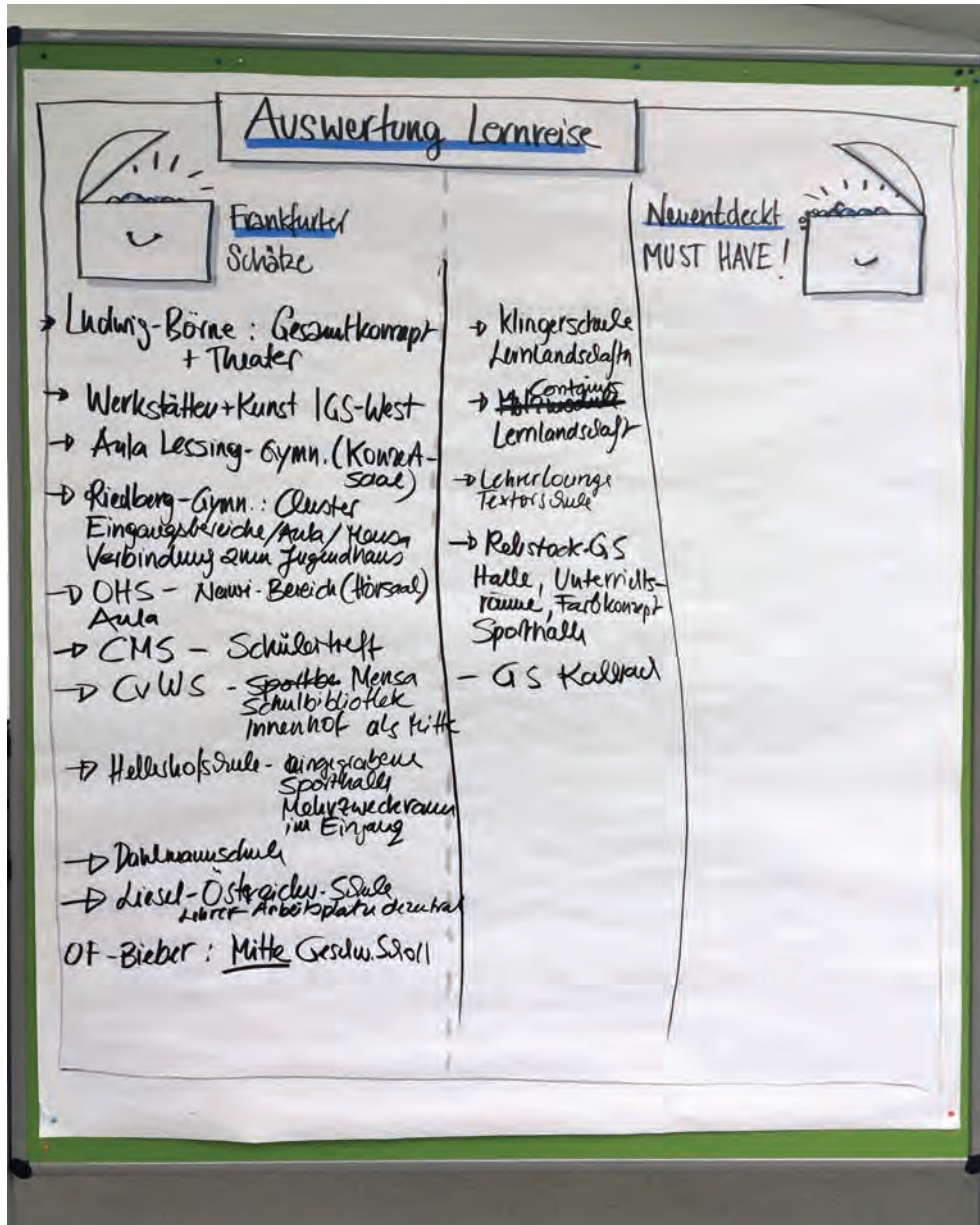 Auswertung Lernreise
Frankfurter
Schätze
→ Ludwig-Börne : Gesamtkonzept
+ Theater
→ Werkstätten + Kunst IGS-West
→ Aula Lessing-Gymn. (Konzert-
saal)
→ Riedberg-Gymn. : Cluster
Eingangsbereiche/Aula/Mensa
Verbindung zum Jugendhaus
→ OHS - Nawi-Bereich (Hörsaal)
Aula
→ CMS - Schülertreff
→ CvWS - Mensa
Schulbibliothek
Innenhof als Mitte
→ Hellerhofschule - eingegrabene
Sporthalle
Mehrzweckraum
im Eingang
→ Dahlmannschule
→ Liesel-Östreicher-Schule
Lehrer-Arbeitsplätze dezentral
OF-Bieber : Mitte Geschw. Scholl
→ Klingerschule
Lernlandschaften
→ Containerschule
Lernlandschaft
→ Lehrerlounge
Textorschule
→ Rebstock-GS
Halle, Unterrichts-
räume, Farbkonzept
Sporthalle
- GS Kalbach
Neuentdeckt
MUST HAVE!